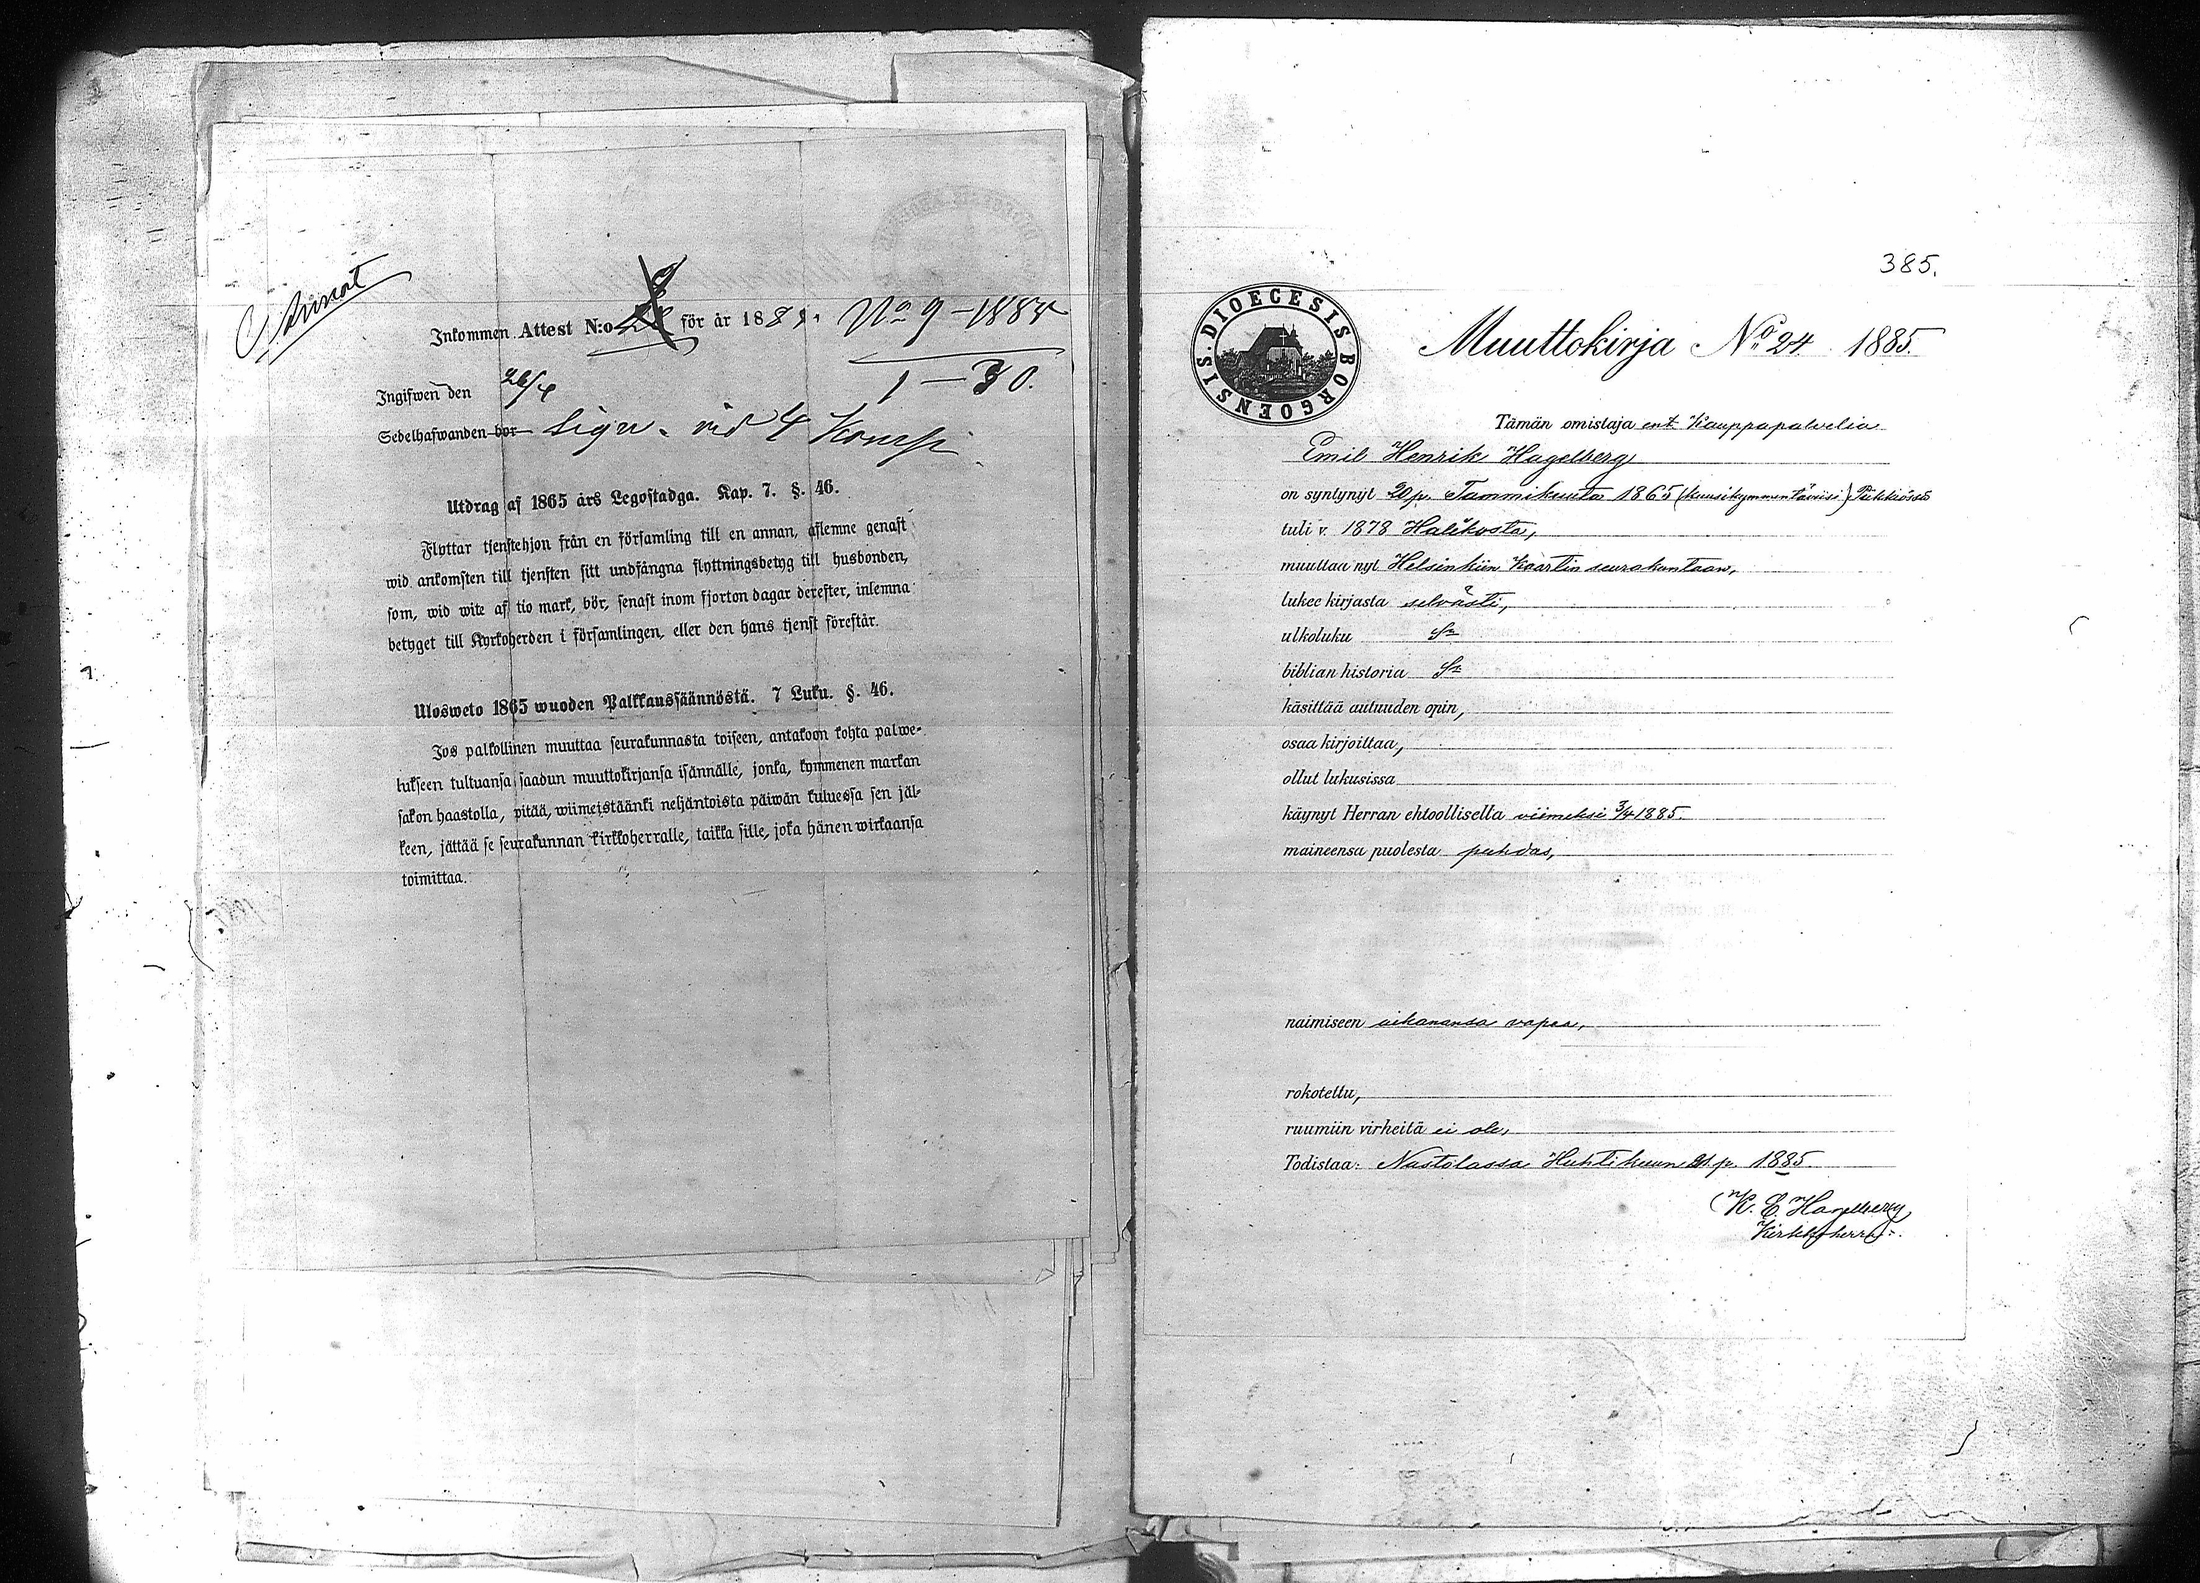 Annot
Inkommen Attest N:o för år 188 No 9 – 1884
1 – 30.
Ingifwen den 26/4
Sedelhafwanden bor Lign. vid 4 Komp.
Utdrag af 1865 års Legostadga. Kap. 7. §. 46.
Flyttar tjenstehjon från en församling till en annan, aflemne genast
wid ankomsten till tjensten sitt undfångna flyttningsbetyg till husbonden,
som, wid wite af tio mark, bör, senast inom fjorton dagar derefter, inlemna
betyget till Kyrkoherden i församlingen, eller den hans tjenst föreståår.
Ulosweto 1865 wuoden Palkkaussäännöstä. 7 Luku. §. 46.
Jos palkollinen muuttaa seurakunnasta toiseen, antakoon kohta palwe-
lukseen tultuansa saadun muuttokirjansa isännälle, jonka, kymmenen markan
sakon haastolla, pitää, wiimeistäänki neljäntoista päiwän kuluessa sen jäl-
keen, jättää se seurakunnan kirkkoherralle, taikka sille, joka hänen wirkaansa
toimittaa.
385.
DIOECESIS BORGOENSIS
Muuttokirja No 24 1885.
Tämän omistaja ent. Kauppapalvelia
Emil Henrik Hagelberg
on syntynyt 20 p. Tammikuuta 1865 (kuusikymmentäviisi) Piikkiössä
tuli v. 1878 Halikosta,
muuttaa nyt Helsinkiin Kaartin seurakuntaan,
lukee kirjasta selvästi,
ulkoluku
biblian historia
käsittää autuuden opin,
osaa kirjoittaa,
ollut lukusissa
käynyt Herran ehtoollisella viimeksi 3/4 1885.
maineensa puolesta puhdas,
naimiseen aikanansa vapaa,
rokotettu,
ruumiin virheitä ei ole,
Todistaa: Nastolassa Huhtikuun 21 p. 1885
K. E. Hagelberg
Kirkkoherra.